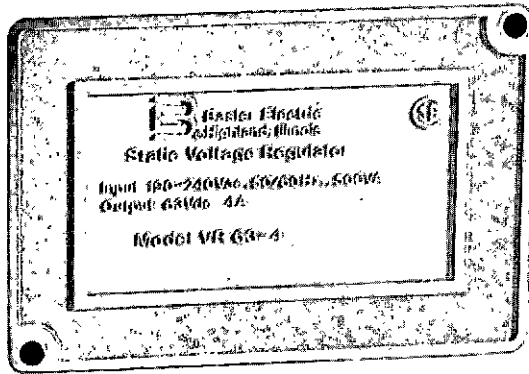 Basler Electric
Highland, Illinois
Static Voltage Regulator
Input 190-240VAC, 50/60Hz, 500VA
Output 63Vdc 4A
Model VR 63-4